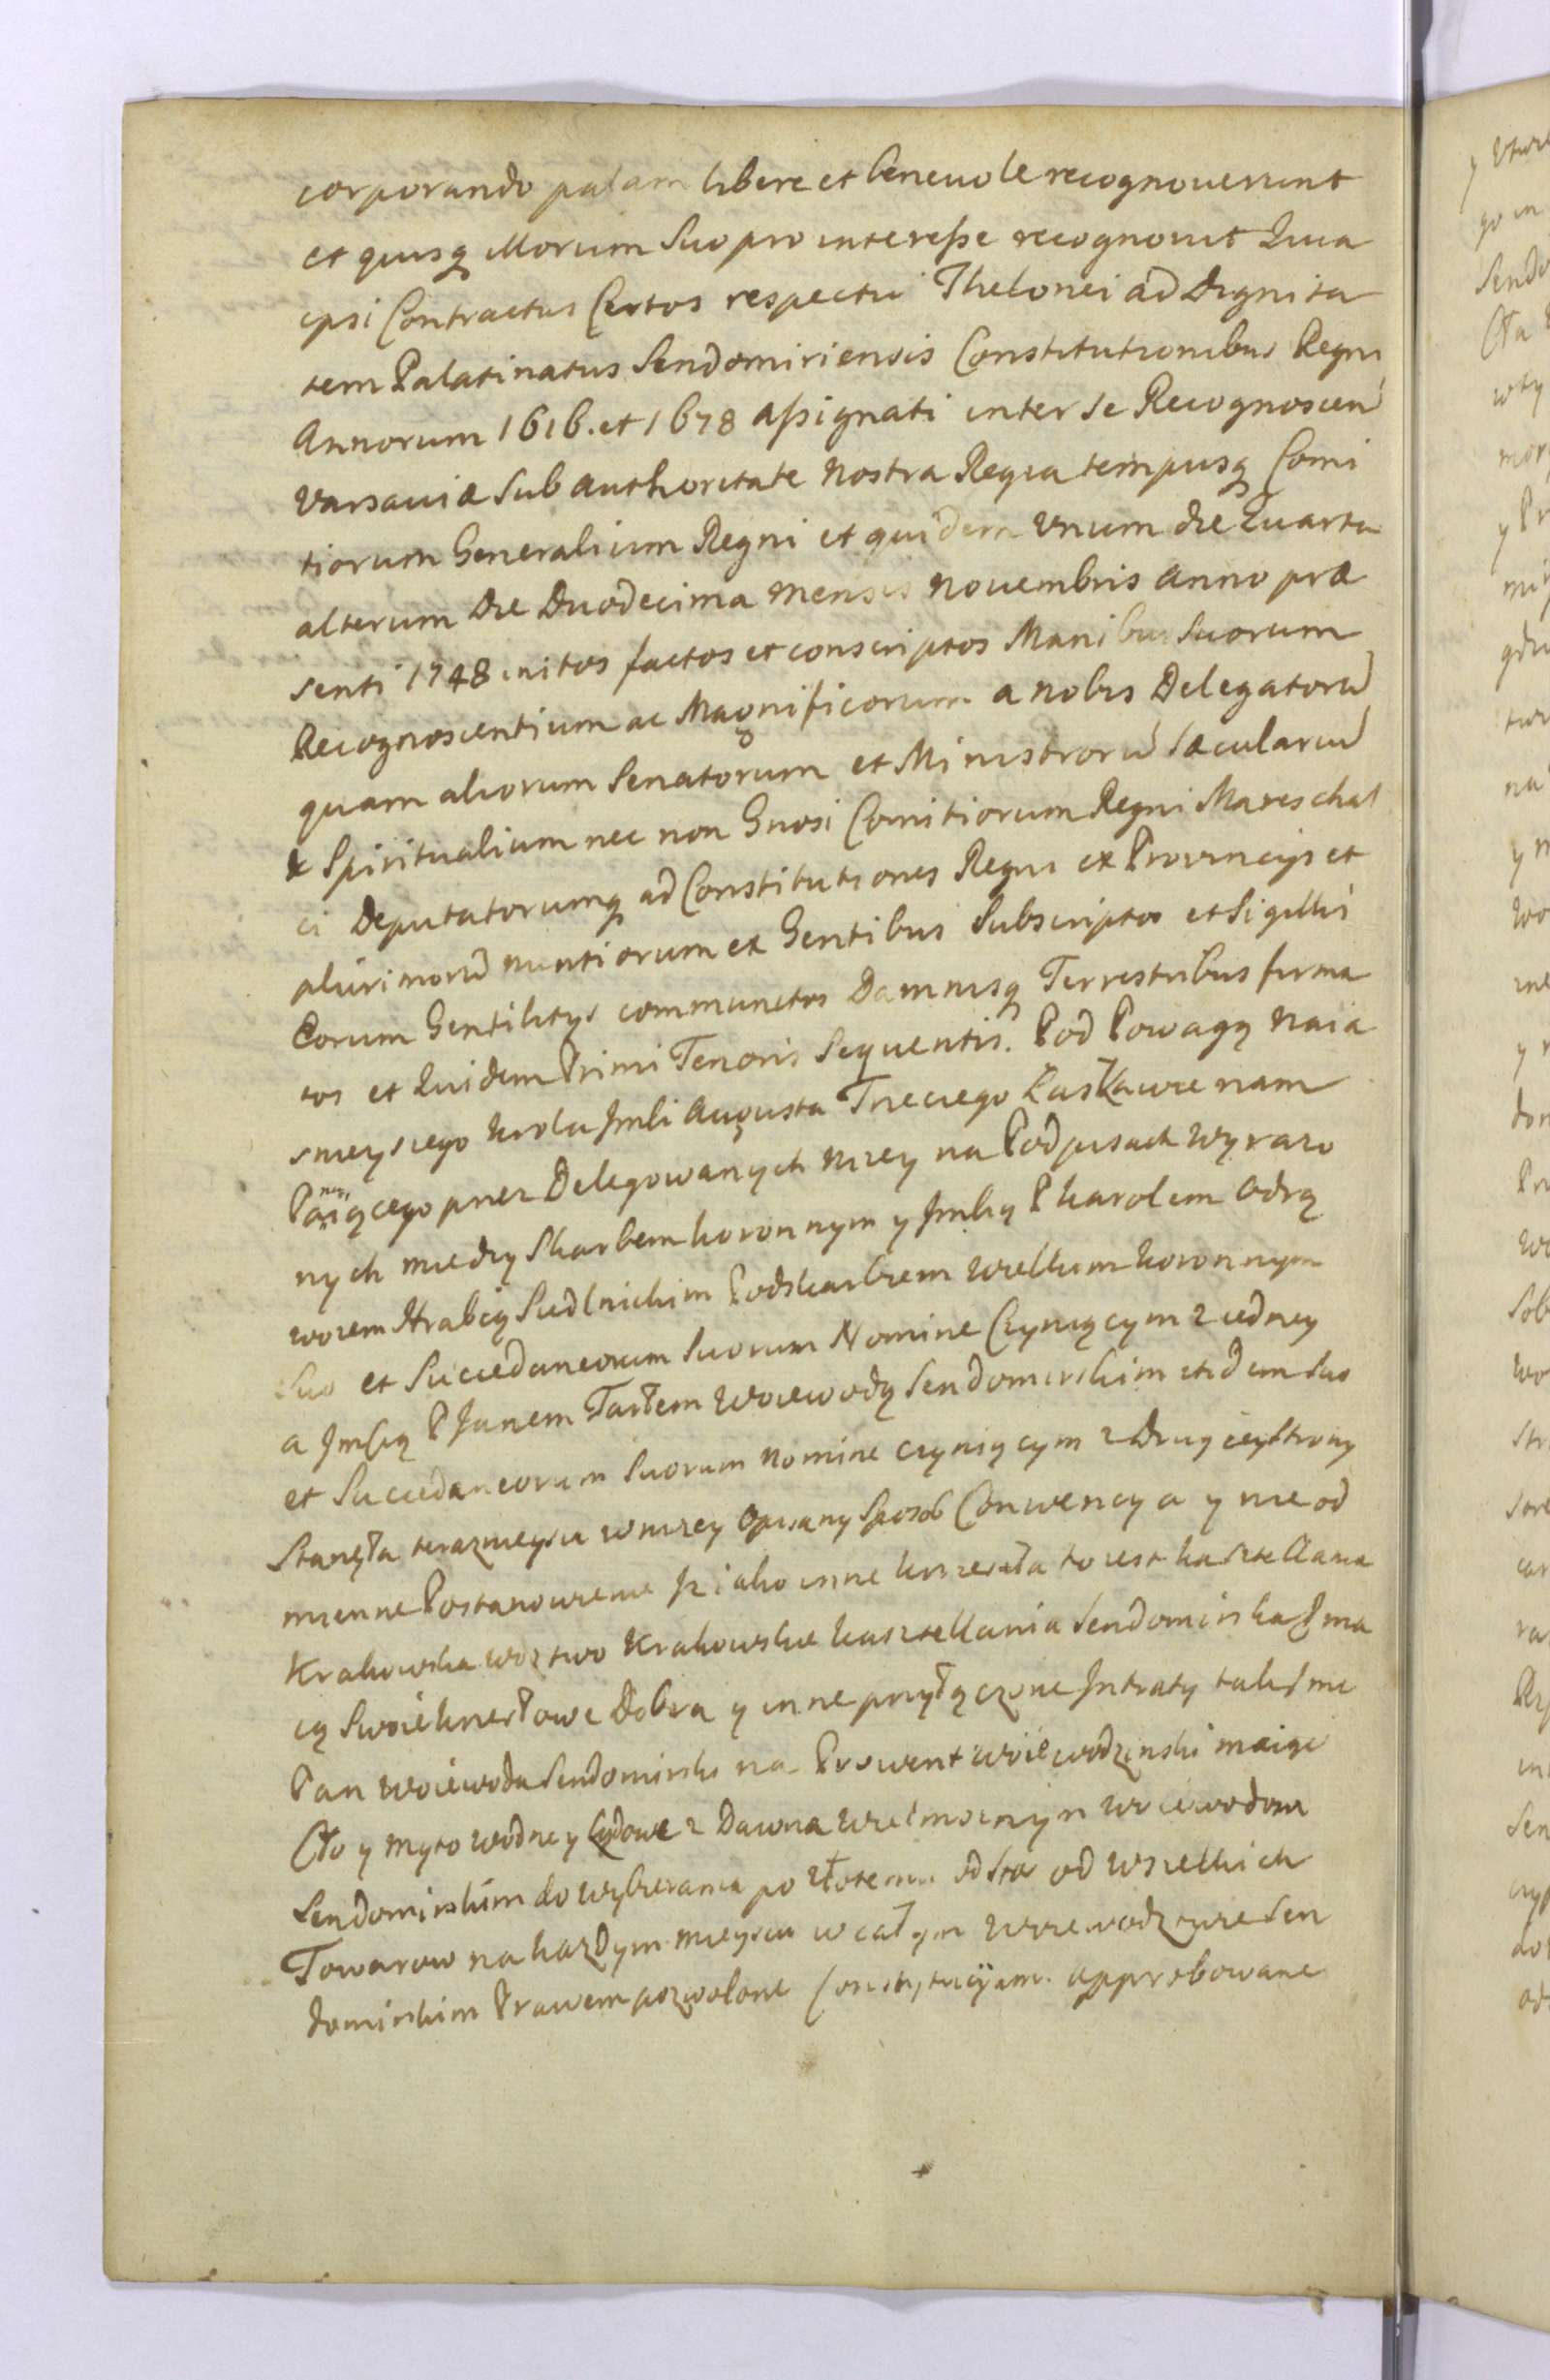 corporando palam libere et beneuole recognouerunt
et quisq Illorum Suo pro interesse recognouit Quia
ipsi Contractus Certos respectu Thelonei ad Dignita
tem Palatinatus Sendomiriensis Constitutionibus Regni
Annorum 1616. et 1678 assignati inter se Recognoscen
Varsauiæ Sub authoritate nostra Regia tempusq Comi
tiorum Generalium Regni et quidem Vnum die Quarta
alterum Die Duodecima mensis Nouembris Anno præ
senti 1748 initos factos et conscriptos Manibus Suorum
Recognoscentium ac Magnificorum a nobis Delegatorū
quam aliorum Senatorum et Ministrorū Sæculariū
& Spiritualium nec non Gnosi Comitiorum Regni Mareschal
ci Deputatorumq ad Constitutiones Regni ex Provincijs et
plurimorū nuntiorum ex Gentibus Subscriptos et Sigillis
Eorum Gentilitijs communitos Damnisq Terrestribus firma
tos et Quidem Primi Tenoris Sequentis. Pod Powagą Naia
snieyszego Krola Jmsci Augusta Trzeciego Łaskawie nam
Panuiącego przez Delegowanych niżey na Podpisach Wyrażo
nych między Skarbem koronnym y Jmscią P Karolem Odrą
wozem Hrabią Siedlnickim Podskarbiem Wielkim koronnym
Suo et Succedaneorum Suorum Nomine Czyniącym z iedney
a Jmscią P Janem Tarłem Woiewodą Sendomirskim itidem Suo
et Succedaneorum Suorum nomine czyniącym z drugiey strony
Stanęła teraznieysza w niżey Opisany Sposob Conwencya y nieod
mienne Postanowienie Iż iako inne krzesła to iest kasztellania
Krakowska wdztwo Krakowskie kasztellania Sendomirska &c ma
ią Swoie krzesłowe Dobra y inne przyłączone Intraty tak Jmć
Pan Woiewoda Sendomirski na Prowent woiewodzinski maiąc
Cło y myto wodne y lądowe z Dawna Wielmoznym Woiewodom
Sendomirskim do wybierania po złotemu od sta od wszelkich
Towarow na kazdym mieyscu w całym Woiewodztwie Sen
domirskim Prawem pozwolone Constytucyami approbowane